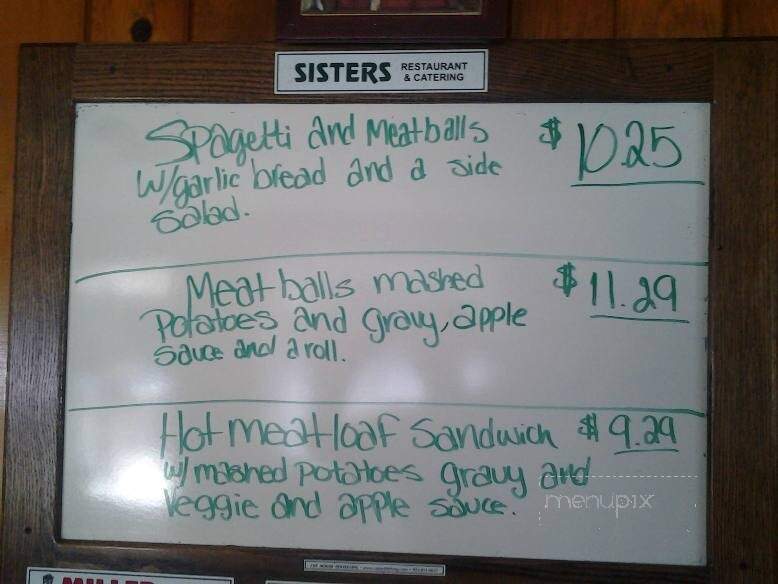 SISTERS RESTAURANT & CATERING
Spagetti and Meatballs $10.25
w/garlic bread and a side
salad.
Meatballs mashed $11.29
Potatoes and gravy, apple
sauce and a roll.
Hot meatloaf Sandwich $9.29
w/ mashed potatoes gravy and
Veggie and apple sauce.
menupix
MILLER